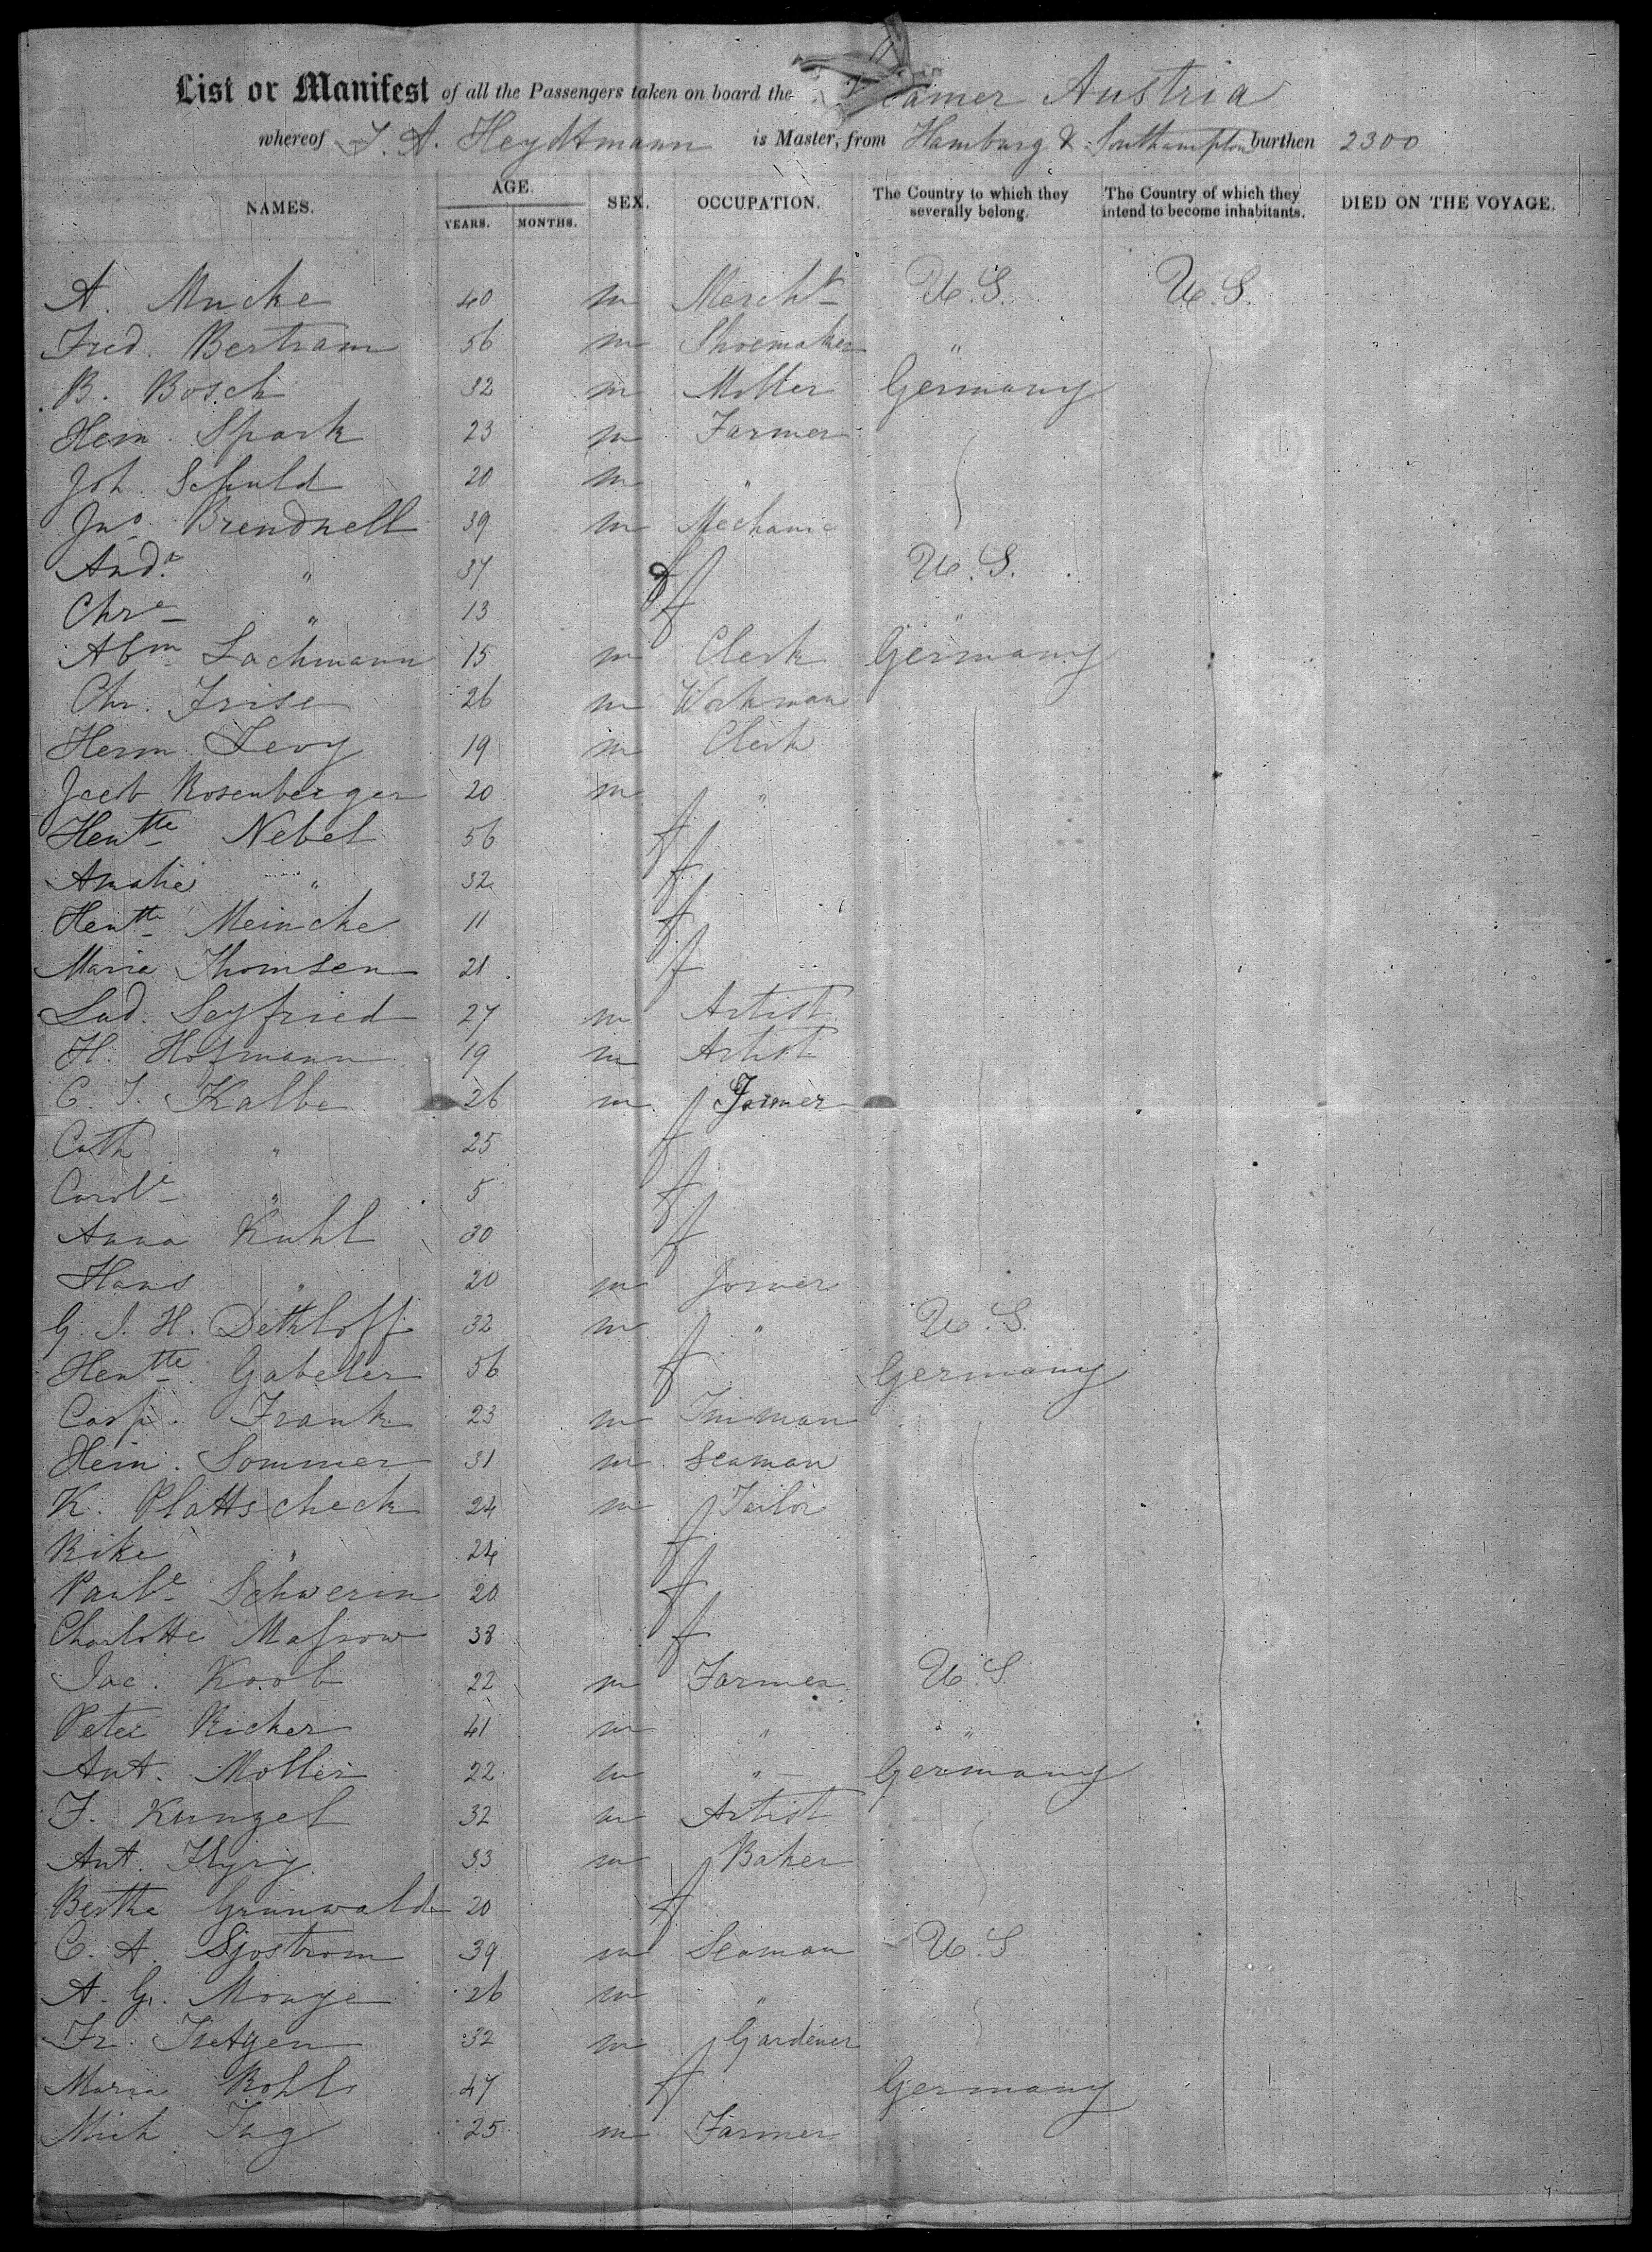 List or Manifest of all the Passengers taken on board the Steamer Austria
whereof F. A. Heydtmann is Master, from Hamburg & Southampton burthen 2300
NAMES. AGE. SEX. OCCUPATION. The Country to which they severally belong. The Country of which they intend to become inhabitants. DIED ON THE VOYAGE.
YEARS. MONTHS.
A. Mucke 40 m Mercht U.S. U.S.
Fred. Bertram 56 m Shoemaker "
B. Bosch 32 m Miller Germany
Hein. Spark 23 m Farmer
Joh. Schuld 20 m "
Jno. Brendnell 39 m Mechanic
Anda. " 37 f U.S.
Chre " 13 f "
Abm Lachmann 15 m Clerk Germany
Chr. Frise 26 m Workman
Herm. Levy 19 m Clerk
Jacb Rosenberger 20 m "
Hentte Nebel 56 f
Amalie " 32 f
Hentte Meincke 11 f
Maria Thomsen 21 f
Lud. Seyfried 27 m Artist
H. Hofmann 19 m Artist
C. J. Kalbe 26 m Farmer
Cath " 25 f
Carole " 5 f
Anna Kuhl 30 f
Hans " 20 m Joiner
G. J. H. Dethloff 32 m " U.S.
Hentte Gabeler 56 f Germany
Casp. Frank 23 m Tinman
Hein. Sommer 31 m Seaman
K. Plattscheck 24 m Tailor
Rike " 24 f
Paule Schwerin 20 f
Charlotte Massow 38 f
Jac. Koob 22 m Farmer U.S.
Peter Ricker 41 m " "
Ant. Moller 22 m " Germany
F. Kunzel 32 m Artist
Ant. 33 m Baker
Bertha Grunwald 20 f
C. A. Sjostrom 39 m Seaman U.S.
A. G. Monye 26 m "
Fr. 32 m Gardener
Maria Rohls 47 f Germany
Mich 25 m Farmer